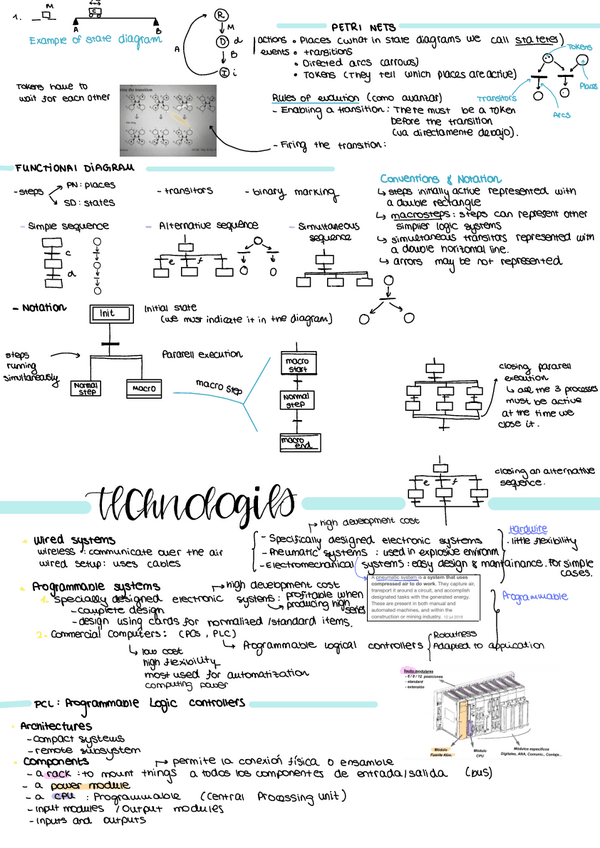 1.
M
C
A
B
Example of state diagram
R
M
D d
A
B
I i
PETRI NETS
actions • Places (what in state diagrams we call states)
events • transitions
• Directed arcs (arrows)
• Tokens (They tell which places are active)
Tokens
Places
Transitors
Arcs
Tokens have to
wait for each other
Rules of evolution (como avanzar)
- Enabling a transition: There must be a token
before the transition
(va directamente debajo).
- Firing the transition:
FUNCTIONAL DIAGRAM
- steps
PN: places
SD: states
- transitors
- binary marking
Conventions & Notation
↳ steps initially active represented with
a double rectangle
↳ macrosteps: steps can represent other
simpler logic systems
↳ simultaneous transitors represented with
a double horizontal line.
↳ arrors may be not represented
- Simple sequence
- Alternative sequence
- Simultaneous
sequence
c
d
e
f
- Notation
Init
Initial state
(we must indicate it in the diagram)
steps
running
simultaneously
Pararell execution
Normal
step
Macro
macro step
macro
start
Normal
step
macro
end
closing pararell
execution
↳ all the 3 processes
must be active
at the time we
close it.
e
f
closing an alternative
sequence.
technologies
• Wired systems
wireless: communicate over the air
wired setup: uses cables
↳ high development cost
- Specifically designed electronic systems
- Pneumatic systems: used in explosive environm.
- Electromechanical systems: easy design & mantainance. For simple
cases.
Hardwire
. little flexibility
A pneumatic system is a system that uses
compressed air to do work. They capture air,
transport it around a circuit, and accomplish
designated tasks with the generated energy.
These are present in both manual and
automated machines, and within the
construction or mining industry.
Programmable
• Programmable systems
→ high development cost
1. Specially designed electronic systems: profitable when
producing high
series
- complete design
- design using cards for normalized/standard items.
2. Commercial computers: (PCs, PLC)
↳ low cost
high flexibility
most used for automatization
computing power
↳ Programmable logical controllers
Robustness
Adapted to application
PCL: Programmable Logic Controllers
• Architectures
- compact systems
- remote subsystem
• Components
→ permite la conexión física o ensamble
- a rack: to mount things a todos los componentes de entrada/salida (bus)
- a power module
- a CPU: Programmable (Central Processing Unit)
- Input modules / output modules
- Inputs and outputs
- 4 / 8 / 12 posiciones
- standard
- extensible
Módulo
CPU
Módulos específicos